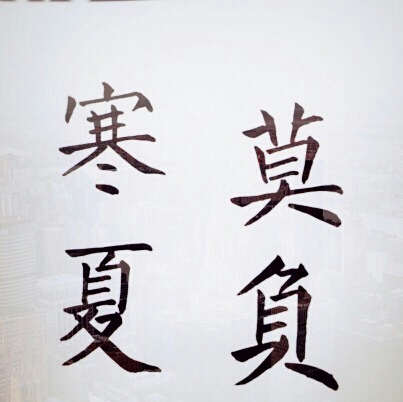 莫負
寒夏